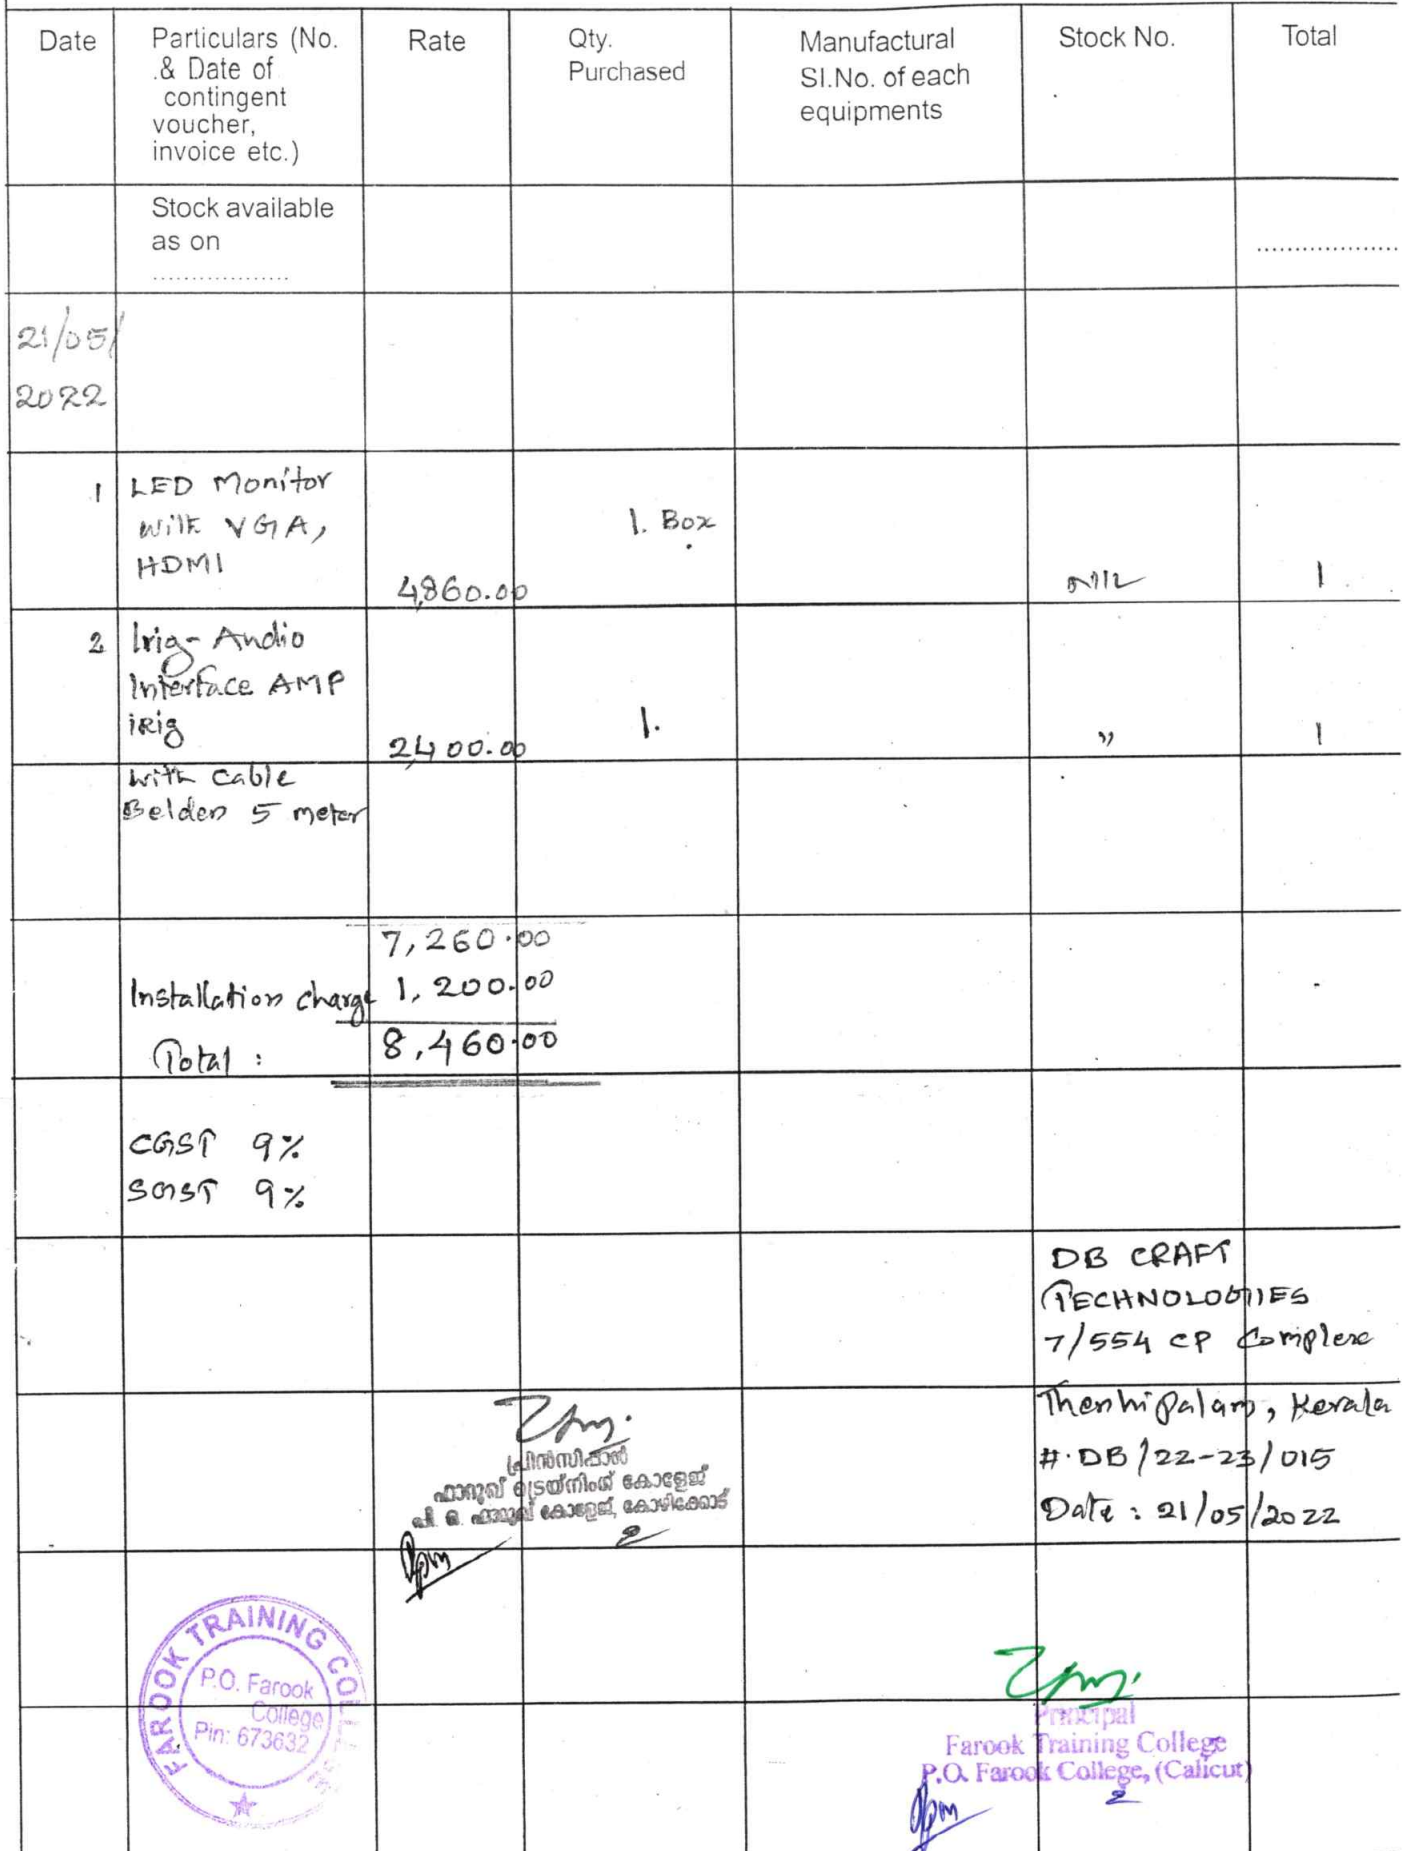 Date
Particulars (No.
.& Date of
contingent
voucher,
invoice etc.)
Rate
Qty.
Purchased
Manufactural
SI.No. of each
equipments
Stock No.
Total
Stock available
as on
.................
..................
21/05/
2022
1
LED Monitor
with VGA,
HDMI
4,860.00
1. Box
1
2
Irig- Audio
Interface AMP
iRig
2,400.00
1.
"
1
with cable
Belden 5 meter
7,260.00
Installation charge 1,200.00
Total : 8,460.00
CGST 9%
SGST 9%
DB CRAFT
TECHNOLOGIES
7/554 CP Complex
Thenhipalam, Kerala
#.DB/22-23/015
Date : 21/05/2022
പ്രിൻസിപ്പാൽ
ഫാറൂഖ് ട്രെയ്നിംഗ് കോളേജ്
പി. ഒ. ഫാറൂഖ് കോളേജ്, കോഴിക്കോട്
FAROOK TRAINING COLLEGE
P.O. Farook
College
Pin: 673632
Principal
Farook Training College
P.O. Farook College, (Calicut)